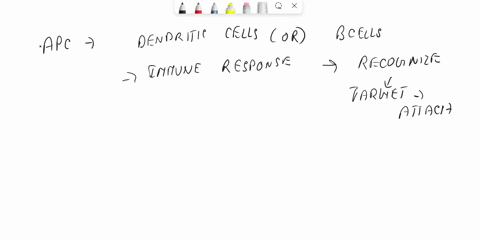 .APC → DENDRITIC CELLS (OR) BCELLS
→ IMMUNE RESPONSE → RECOGNIZE
↓
TARGET →
ATTACH